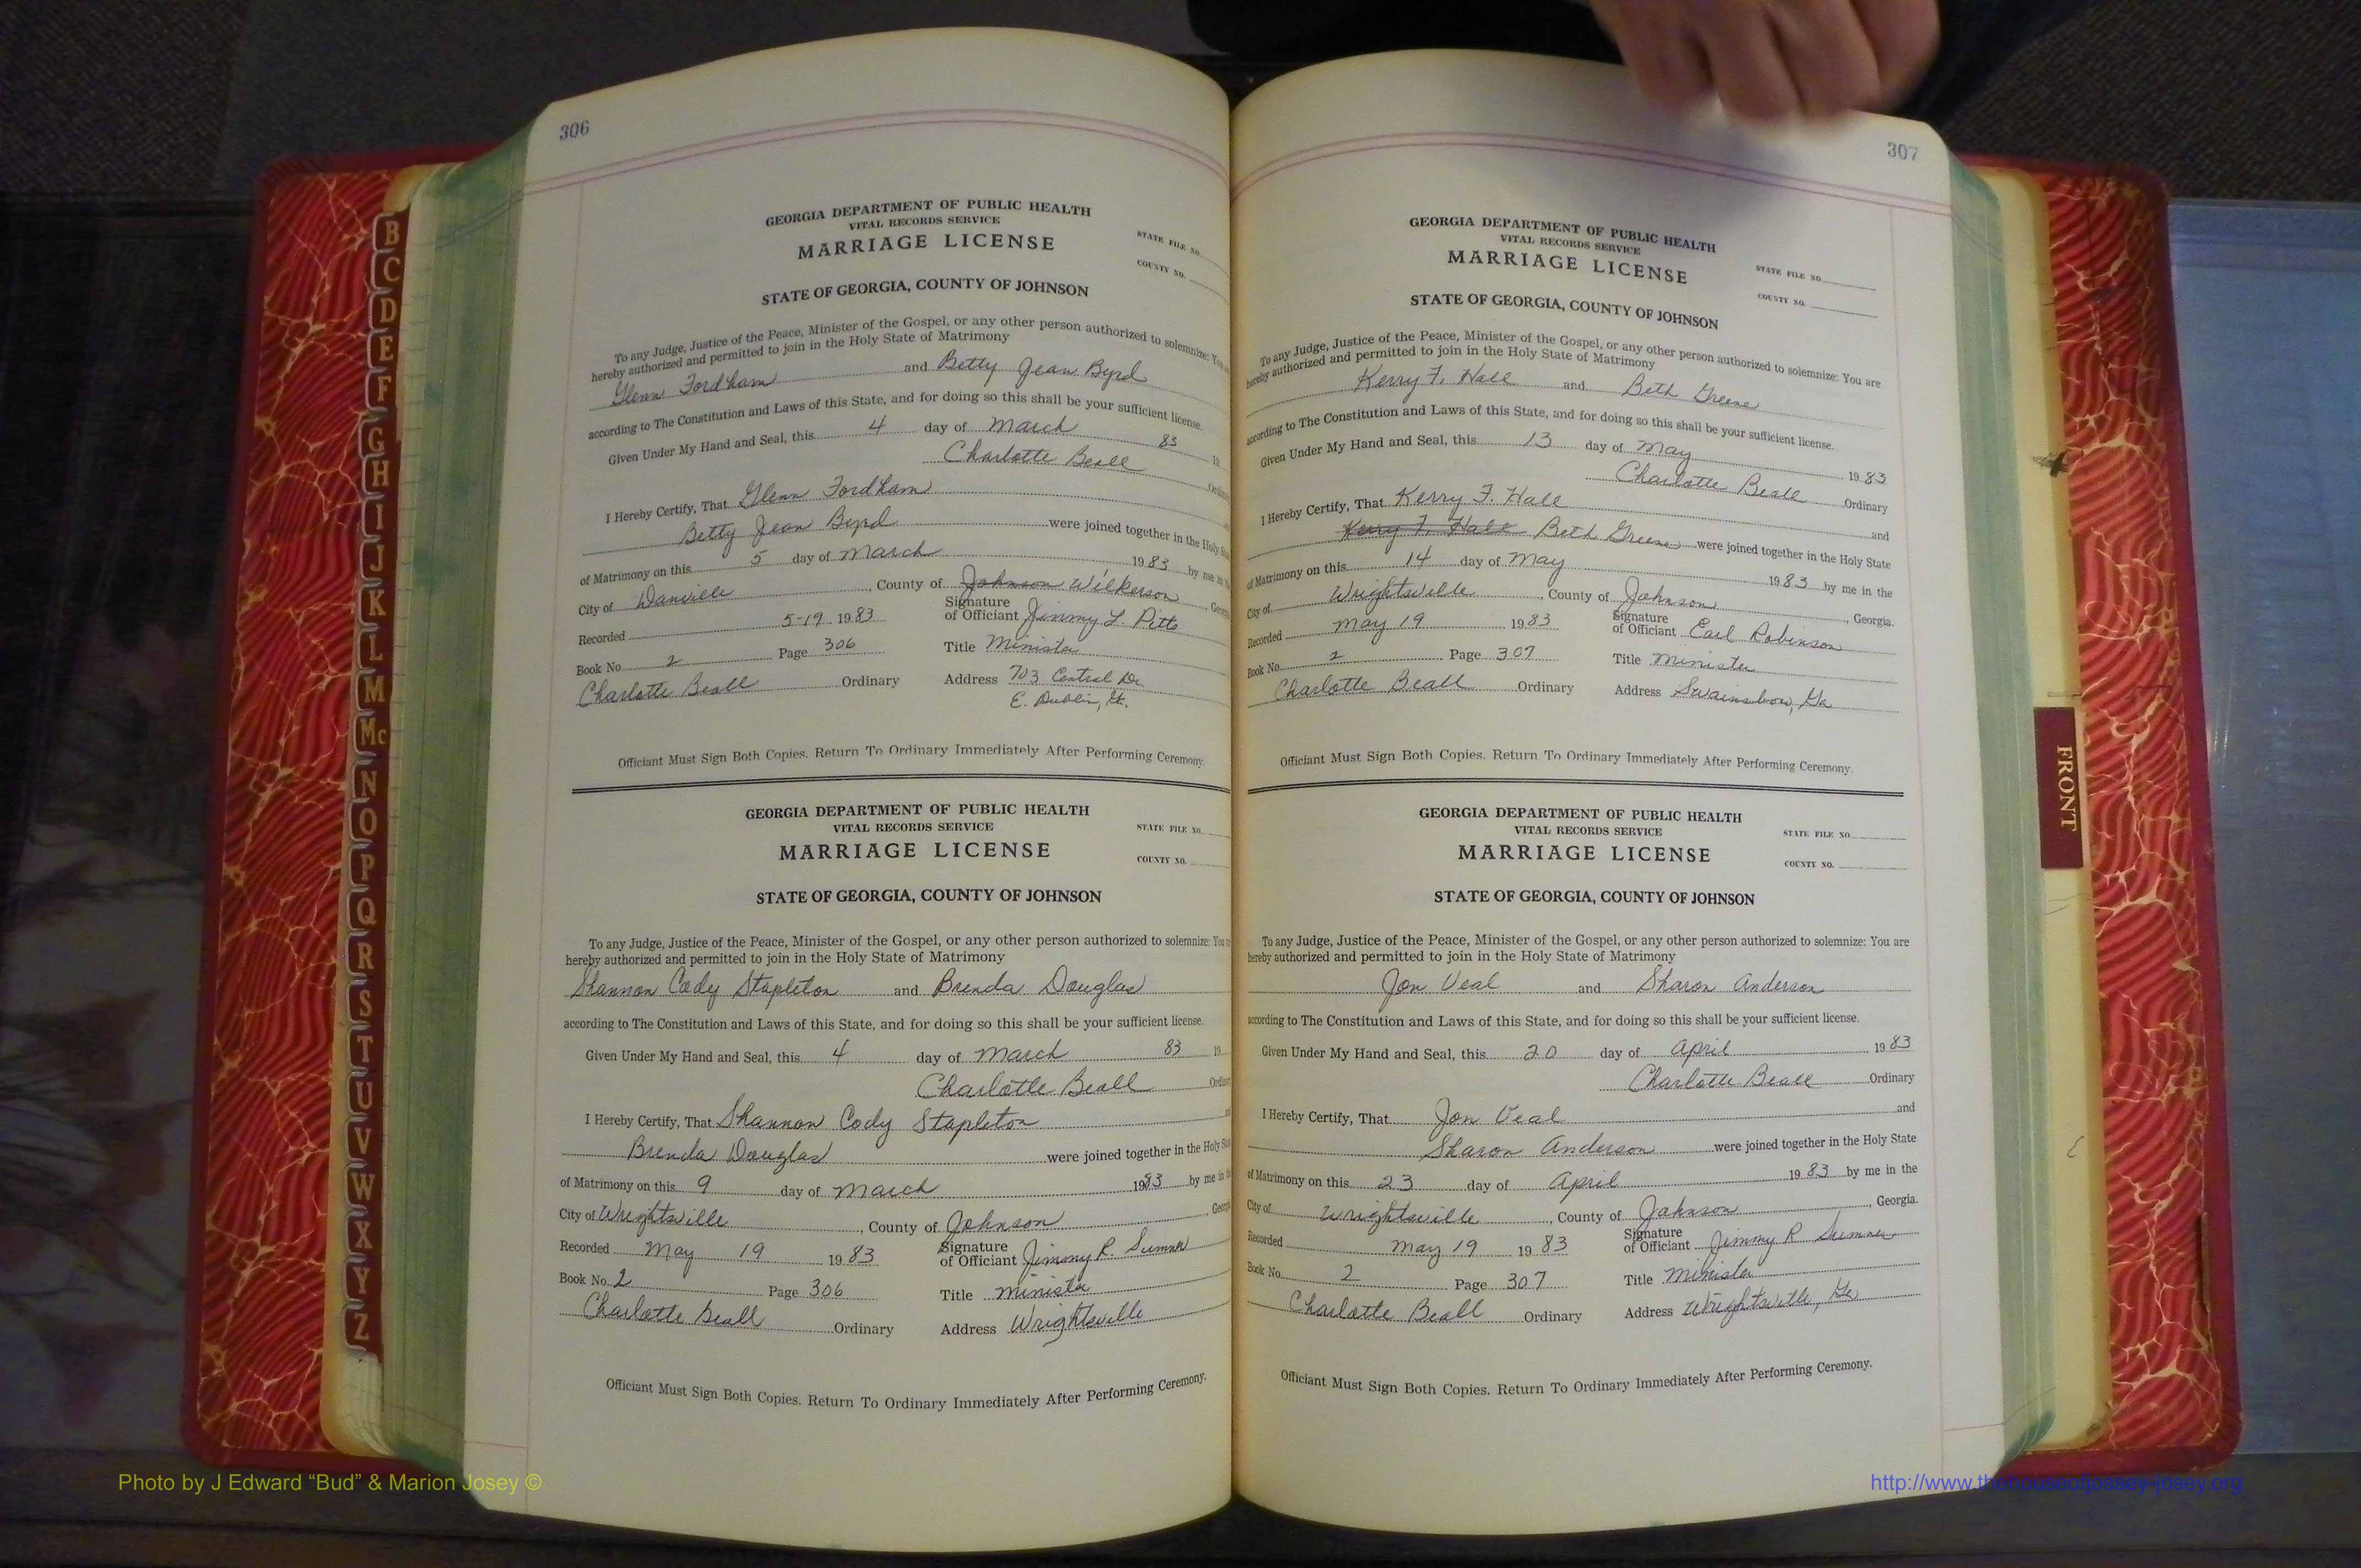 306
GEORGIA DEPARTMENT OF PUBLIC HEALTH
VITAL RECORDS SERVICE
MARRIAGE LICENSE
STATE FILE NO.
COUNTY NO.
STATE OF GEORGIA, COUNTY OF JOHNSON
To any Judge, Justice of the Peace, Minister of the Gospel, or any other person authorized to solemnize: You
hereby authorized and permitted to join in the Holy State of Matrimony
Glenn Fordham and Betty Jean Byrd
according to The Constitution and Laws of this State, and for doing so this shall be your sufficient license.
Given Under My Hand and Seal, this 4 day of March 83 19
Charlotte Beall
I Hereby Certify, That Glenn Fordham
Betty Jean Byrd were joined together in the Holy
of Matrimony on this 5 day of March 1983 by me in
City of Danville, County of Johnson Wilkerson
Recorded 5-19 1983 Signature of Officient Jimmy L. Pitts
Book No 2 Page 306 Title Minister
Charlotte Beall Ordinary Address 703 Central Dr.
E. Dublin, Ga.
Officiant Must Sign Both Copies. Return To Ordinary Immediately After Performing Ceremony.
GEORGIA DEPARTMENT OF PUBLIC HEALTH
VITAL RECORDS SERVICE
MARRIAGE LICENSE
STATE FILE NO.
COUNTY NO.
STATE OF GEORGIA, COUNTY OF JOHNSON
To any Judge, Justice of the Peace, Minister of the Gospel, or any other person authorized to solemnize: You
hereby authorized and permitted to join in the Holy State of Matrimony
Shannon Cody Stapleton and Brenda Douglas
according to The Constitution and Laws of this State, and for doing so this shall be your sufficient license.
Given Under My Hand and Seal, this 4 day of March 83 19
Charlotte Beall
I Hereby Certify, That Shannon Cody Stapleton
Brenda Douglas were joined together in the Holy
of Matrimony on this 9 day of March 1983 by me in
City of Wrightsville, County of Johnson
Recorded May 19 1983 Signature of Officient Jimmy R. Sumner
Book No. 2 Page 306 Title Minister
Charlotte Beall Ordinary Address Wrightsville
Officiant Must Sign Both Copies. Return To Ordinary Immediately After Performing Ceremony.
307
GEORGIA DEPARTMENT OF PUBLIC HEALTH
VITAL RECORDS SERVICE
MARRIAGE LICENSE
STATE FILE NO.
COUNTY NO.
STATE OF GEORGIA, COUNTY OF JOHNSON
To any Judge, Justice of the Peace, Minister of the Gospel, or any other person authorized to solemnize: You are
hereby authorized and permitted to join in the Holy State of Matrimony
Kerry F. Hall and Beth Greene
according to The Constitution and Laws of this State, and for doing so this shall be your sufficient license.
Given Under My Hand and Seal, this 13 day of May 1983
Charlotte Beall Ordinary
I Hereby Certify, That Kerry F. Hall and
Kerry F. Hall Beth Greene were joined together in the Holy State
of Matrimony on this 14 day of May 1983 by me in the
City of Wrightsville, County of Johnson, Georgia.
Recorded May 19 1983 Signature of Officiant Earl Robinson
Book No. 2 Page 307 Title Minister
Charlotte Beall Ordinary Address Swainsbow, Ga
Officiant Must Sign Both Copies. Return To Ordinary Immediately After Performing Ceremony.
GEORGIA DEPARTMENT OF PUBLIC HEALTH
VITAL RECORDS SERVICE
MARRIAGE LICENSE
STATE FILE NO.
COUNTY NO.
STATE OF GEORGIA, COUNTY OF JOHNSON
To any Judge, Justice of the Peace, Minister of the Gospel, or any other person authorized to solemnize: You are
hereby authorized and permitted to join in the Holy State of Matrimony
Jon Veal and Sharon Anderson
according to The Constitution and Laws of this State, and for doing so this shall be your sufficient license.
Given Under My Hand and Seal, this 20 day of April 1983
Charlotte Beall Ordinary
I Hereby Certify, That Jon Veal and
Sharon Anderson were joined together in the Holy State
of Matrimony on this 23 day of April 1983 by me in the
City of Wrightsville, County of Johnson, Georgia.
Recorded May 19 1983 Signature of Officiant Jimmy R Sumner
Book No. 2 Page 307 Title Minister
Charlotte Beall Ordinary Address Wrightsville, Ga
Officiant Must Sign Both Copies. Return To Ordinary Immediately After Performing Ceremony.
B
C
D
E
F
G
H
I
J
K
L
M
Mc
N
O
P
Q
R
S
T
U
V
W
X
Y
Z
FRONT
Photo by J Edward “Bud” & Marion Josey ©
http://www.thehouseofjossey-josey.org